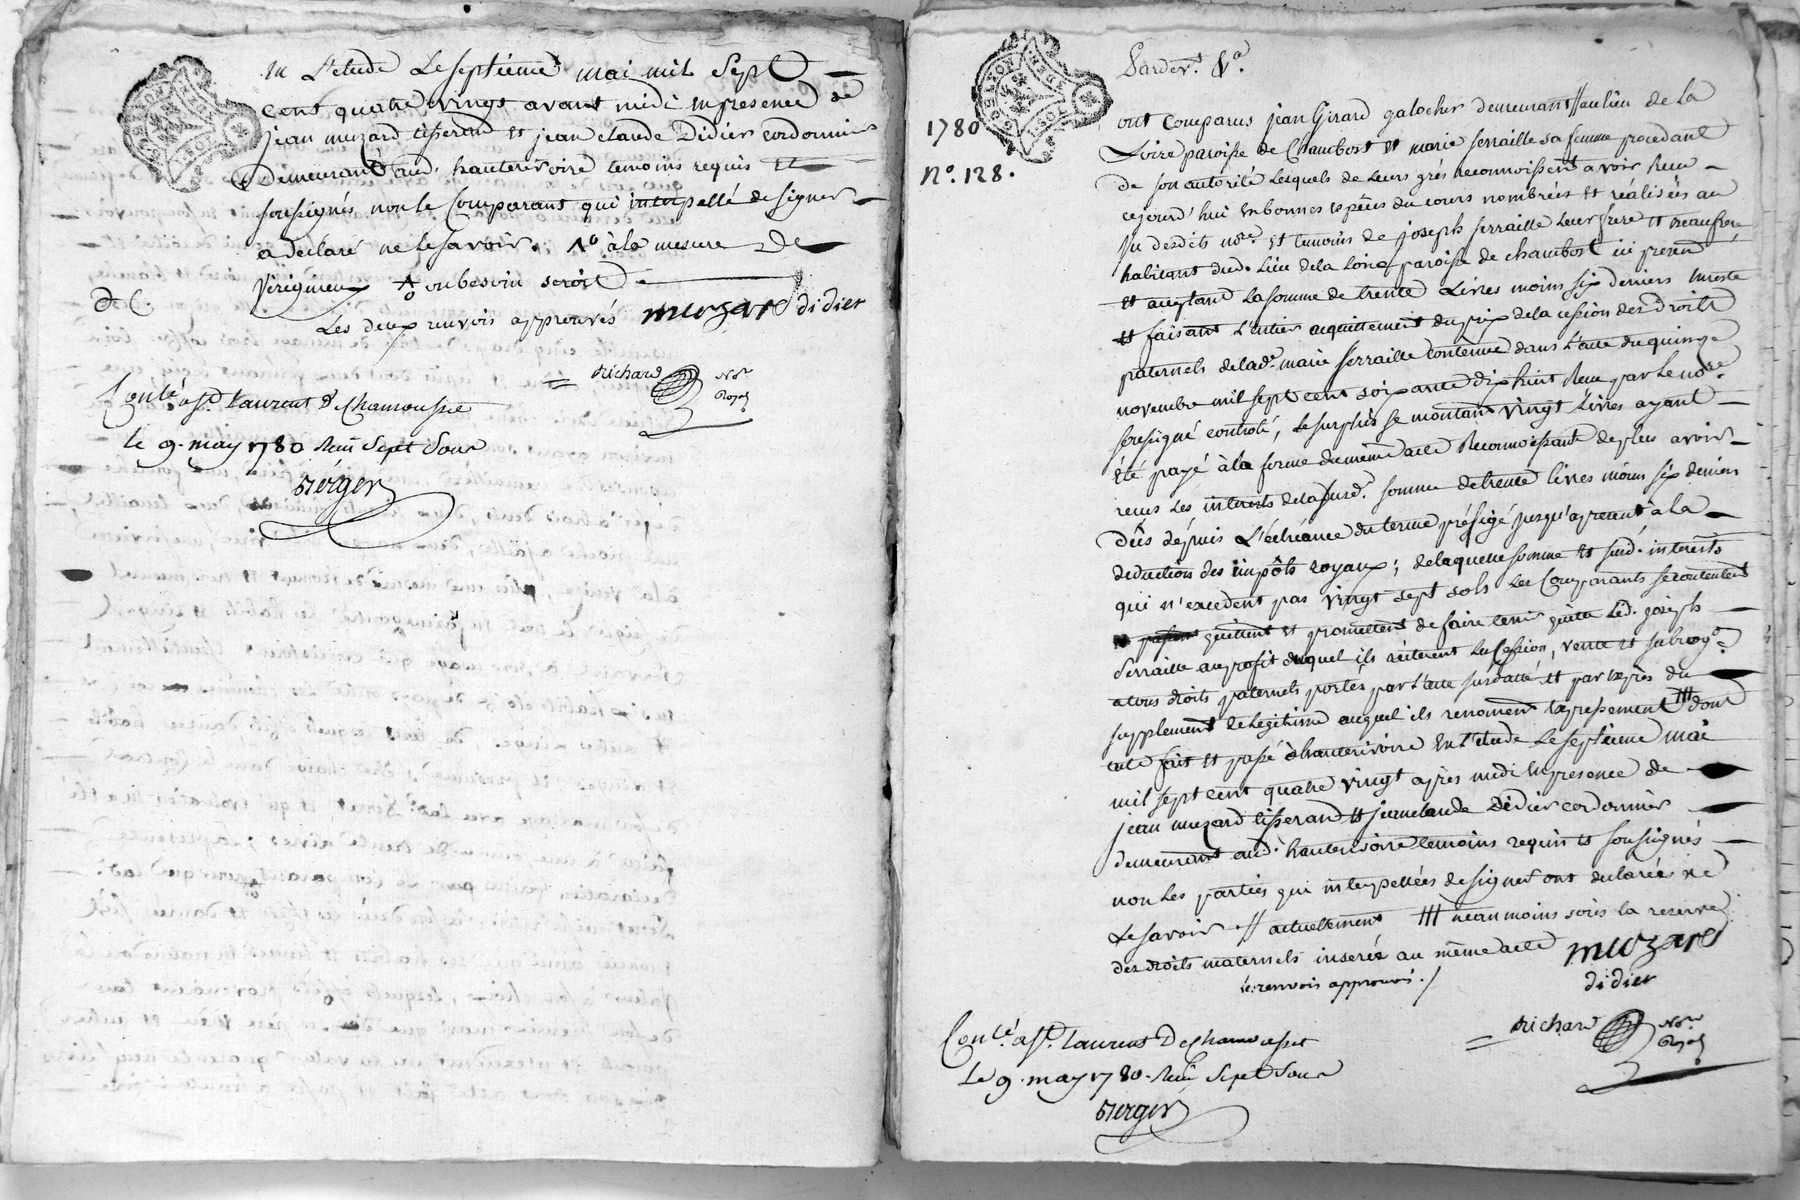 en L'etude Le septieme mai mil Sept
cent quatre vingt avant midi en presence de
jean muzard tisserand et jean claude Didier cordonnier
demeurant aud. hauterivoire temoins requis et
sousignés non le Comparant qui interpellé de signer
a déclaré ne le savoir. à la mesure De
ou besoin seroit
D. C.
Les deux renvois approuvés muzard didier
Richard Nre
Royal
Conlé a St. Laurent De Chamousset
le 9. may 1780 Reçu Sept Sous
Berger
Pardevt. &a.
1780
No. 128.
ont Comparus jean Girard galocher demeurant // au lieu de la
Loire paroisse de Chambost et marie serraille sa femme procedant
de son autorité Lesquels de Leurs grés reconnoissent avoir Reçu
cejourd'hui en bonnes espèces du cours nombrées et réalisées au
vu desdits nore. et temoins de joseph serraille Leur frere et beaufrere
habitant dud. Lieu de la Loire paroisse de chambost ici present
et aceptant La somme de trente Livres moins six deniers en reste
et faisant L'entier acquittement du prix de la cession des droits
paternels de lad. marie serraille contenue dans L'acte du quinze
novembre mil sept cent soixante dix huit Reçu par Le nore.
sousigné controlé, le surplus se montant vingt Livres ayant
été payé à la forme du meme acte Reconnoissant de plus avoir
recus Les interets de la susd. somme de trente livres moins six deniers
dûs dépuis L'échéance du terme préfigé jusqu'apresent à la
deduction des impôts royaux; de laquelle somme et susd. interests
qui n'excedent pas vingt sept sols Les Comparants se contentent
quittent et promettent de faire tenir quitte Led. joseph
Serraille au profit duquel ils réiterent La Cession, vente et subrogon.
a tous droits paternels portés par L'acte susdatté et par exprès du
supplement de legitime auquel ils renoncent expressement /// dont
acte fait et passé à hauterivoire en L'etude Le septieme mai
mil sept cent quatre vingt après midi en presence de
jean muzard tisserand et jean claude Didier cordonnier
demeurant aud. hauterivoire temoins requis et sousignés
non Les parties qui interpellées de signer ont declarées ne
Le savoir // actuellement /// neanmoins sous la reserve
des droits maternels inserée au même acte muzard
les renvois approuvés. didier
Richard Nre
Royal
Conlé. a St. Laurent De Chamousset
Le 9. may 1780. Reçu Sept Sous
Berger